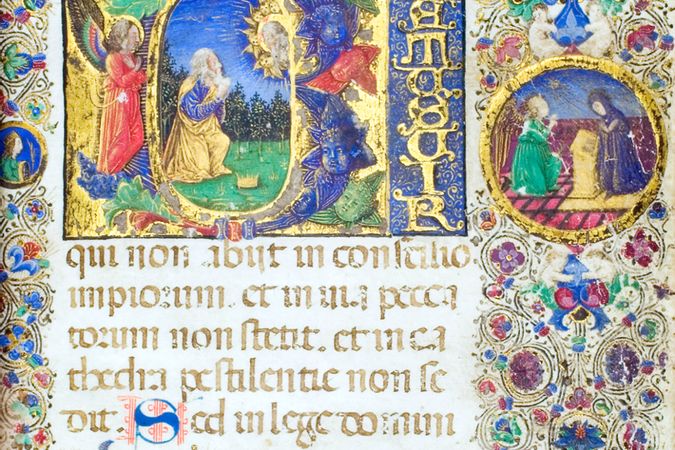 qui non abijt in consilio
impiorum. et in uia pecca
torum non stetit. et in ca
thedra pestilentie non se
dit. Sed in lege domini